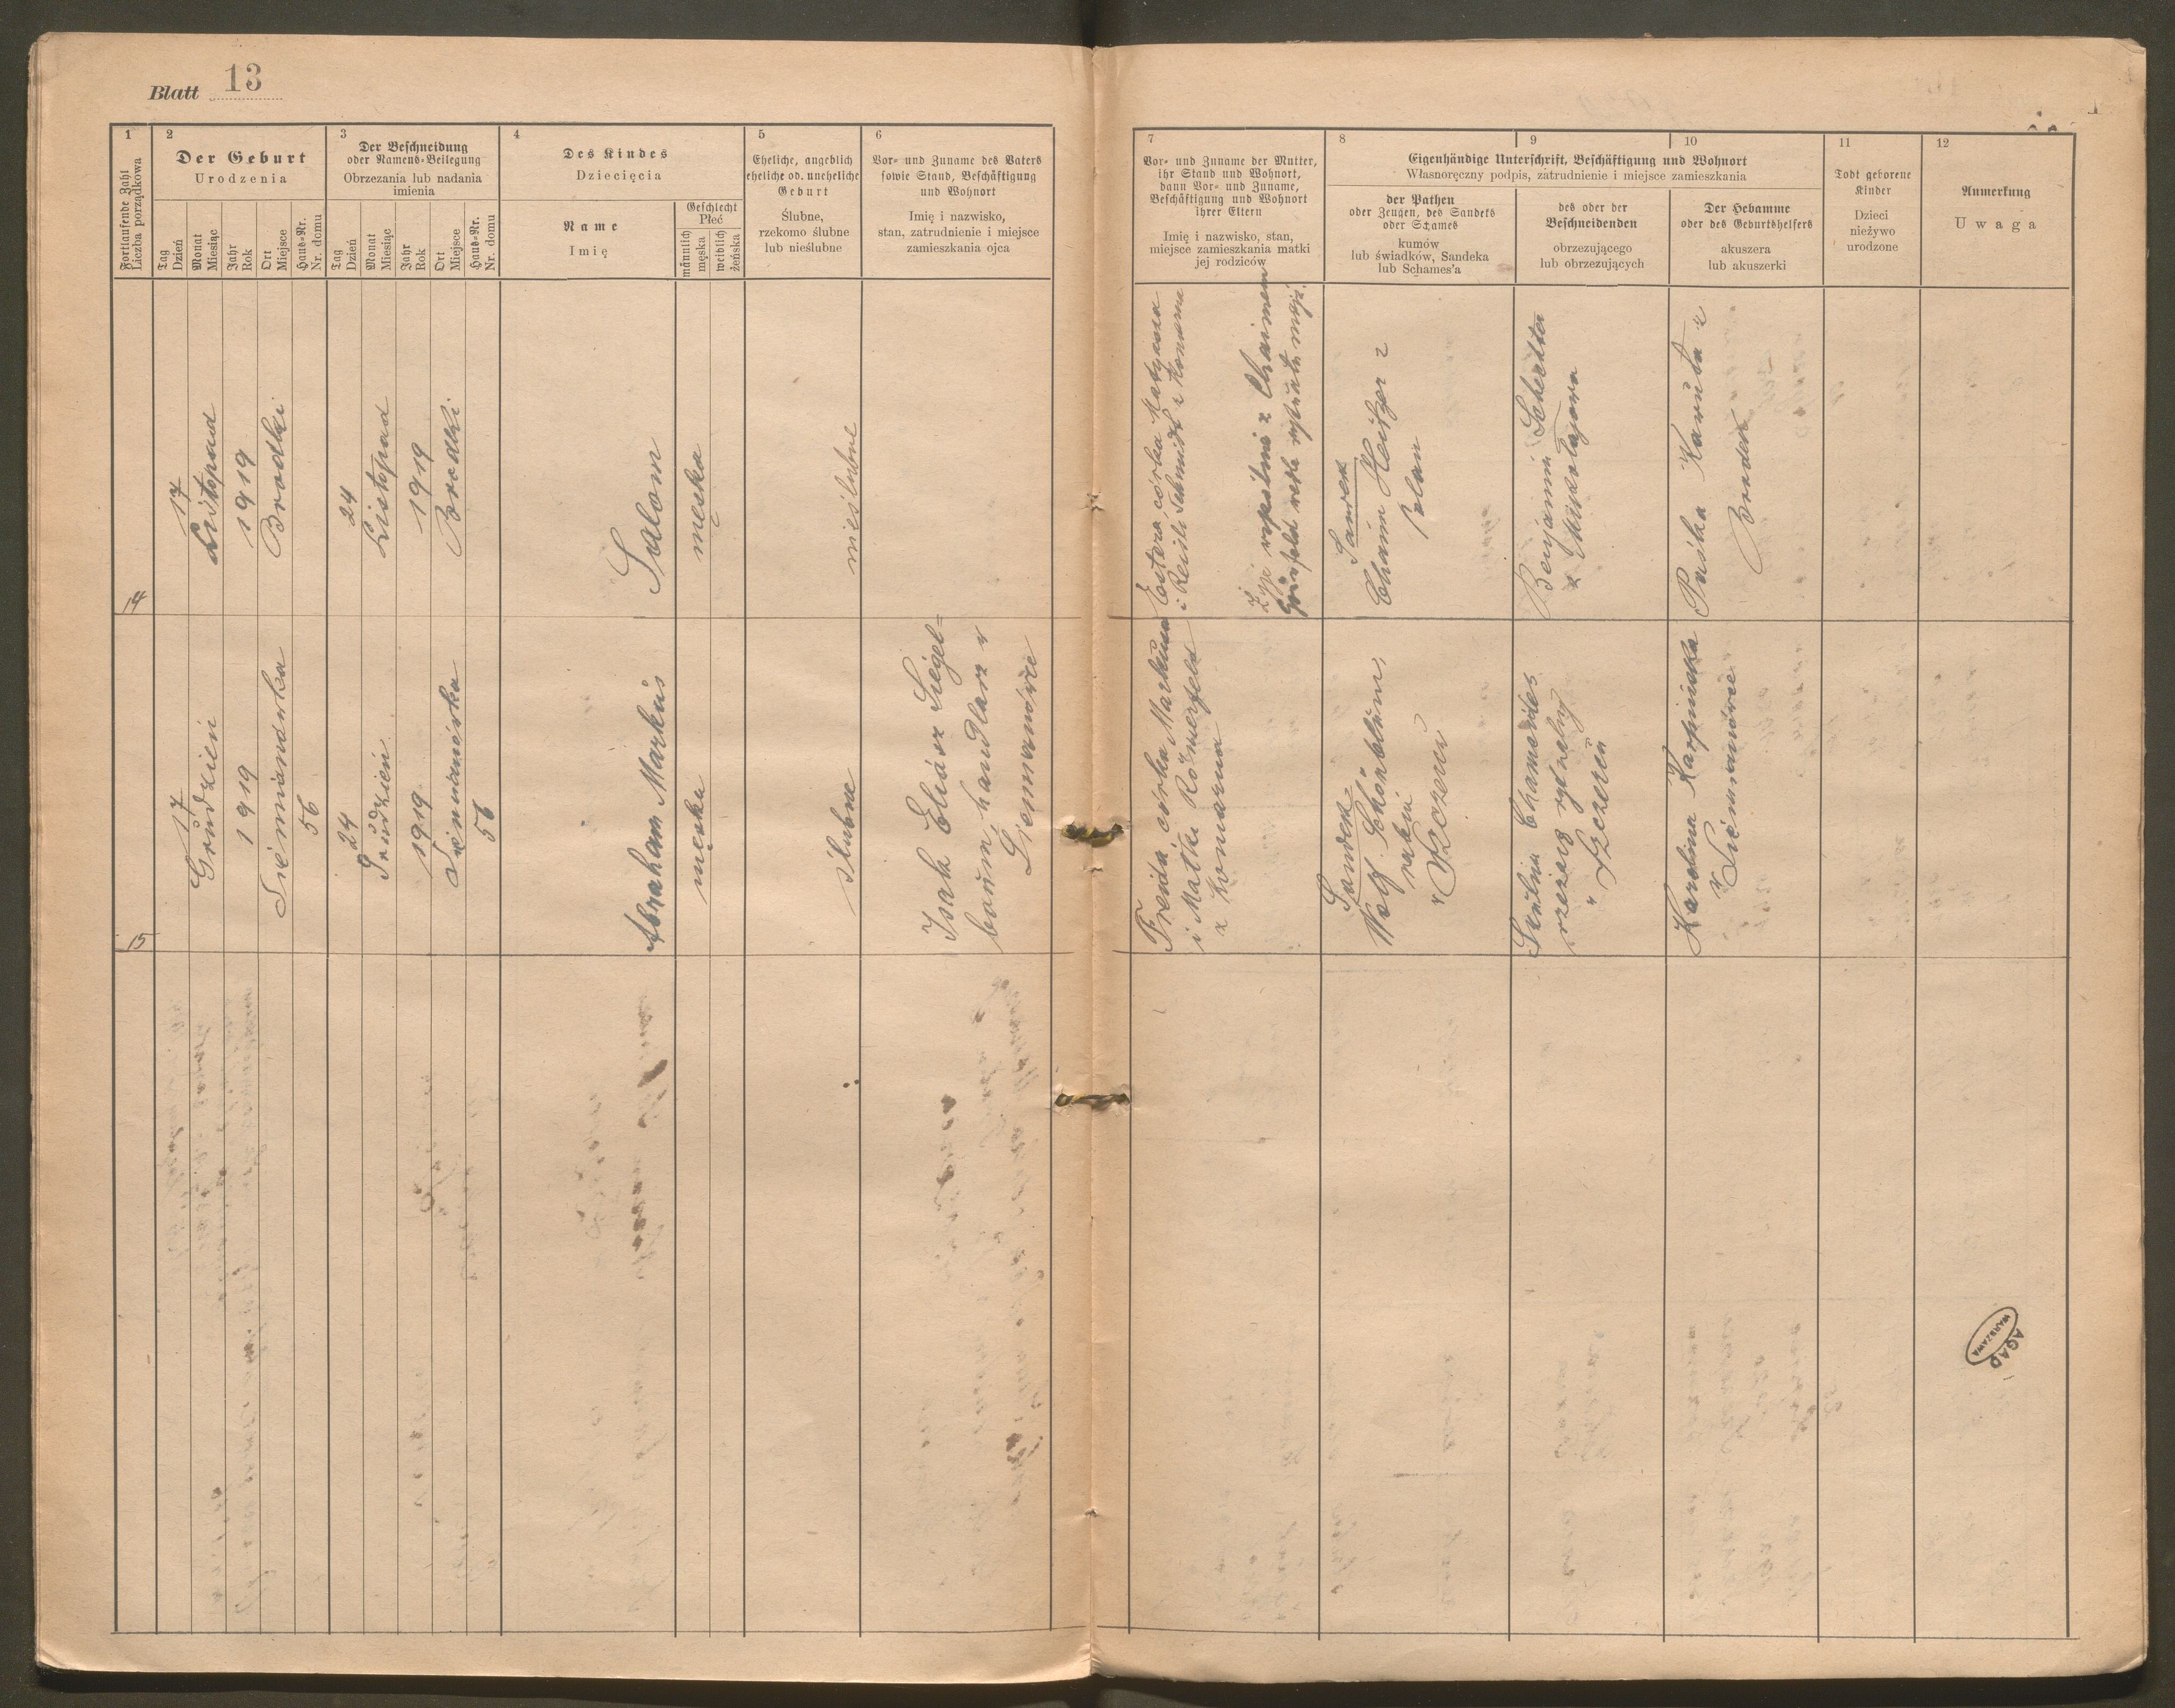 Blatt 13
1
Fortlaufende Zahl
Liczba porządkowa
2
Der Geburt
Urodzenia
Tag
Dzień
Monat
Miesiąc
Jahr
Rok
Ort
Miejsce
Haus-Nr.
Nr. domu
3
Der Beschneidung
oder Namens-Beilegung
Obrzezania lub nadania
imienia
Tag
Dzień
Monat
Miesiąc
Jahr
Rok
Ort
Miejsce
Haus-Nr.
Nr. domu
4
Des Kindes
Dziecięcia
Name
Imię
Geschlecht
Płeć
männlich
męska
weiblich
żeńska
5
Eheliche, angeblich
eheliche od. uneheliche
Geburt
Ślubne,
rzekomo ślubne
lub nieślubne
6
Vor- und Zuname des Vaters
sowie Stand, Beschäftigung
und Wohnort
Imię i nazwisko,
stan, zatrudnienie i miejsce
zamieszkania ojca
7
Vor- und Zuname der Mutter,
ihr Stand und Wohnort,
dann Vor- und Zuname,
Beschäftigung und Wohnort
ihrer Eltern
Imię i nazwisko, stan,
miejsce zamieszkania matki
jej rodziców
Eigenhändige Unterschrift, Beschäftigung und Wohnort
Własnoręczny podpis, zatrudnienie i miejsce zamieszkania
8
der Pathen
oder Zeugen, des Sandeks
oder Schames
kumów
lub świadków, Sandeka
lub Schames'a
9
des oder der
Beschneidenden
obrzezującego
lub obrzezujących
10
Der Hebamme
oder des Geburtshelfers
akuszera
lub akuszerki
11
Todt geborene
Kinder
Dzieci
nieżywo
urodzone
12
Anmerkung
Uwaga
14
17
Listopad
1919
Brodki
24
Listopad
1919
Brodki
Salom
męska
nieślubne
Estera, córka Matyasza
i Reisli Schmidt z Komarna
Żyje wspólnie z Chaimem
Sandek
Chaim Heitzer z
Polan
Benjamin Schechter
z Mikołajowa
Paśka
z
Brodek
15
17
Grudzień
1919
Siemianówka
56
24
Grudzień
1919
Siemianówka
56
Abraham Markus
męska
ślubne
Isak Eliasz Siegel=
baum, handlarz w
Siemianówce
Freida, córka Markusa
i Matki
z Komarna
Sandek
Wolf Schönblum,
rabin
w Szczercu
Chameides
rzezak rytualny
w Szczercu
Karolina Karpinska
w Siemianówce
AGAD
WARSZAWA